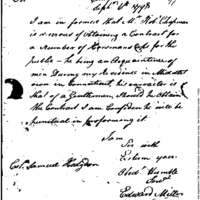 Sept 6th 1798
I am informed that Mr. Nehh. Chapman
is desirous of obtaining a Contract for
a Number of Horsemans Caps for the
public – he being an Acquaintance of
mine During my Residence in Middle
town in Connecticut, his carracter is
that of a Gentleman, Should he Obtain
the Contract I am Confident he will be
punctual in performing it
I am
Sir with
Esteem your
Obedt Humble
Servt
Edward Miller
Col. Samuel Hodgdon